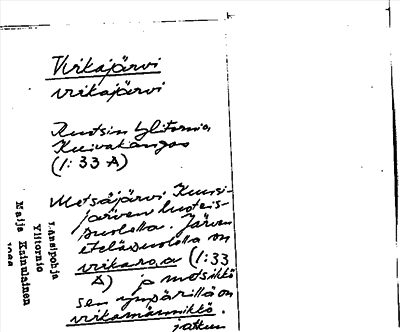 Virkajärvi
virkajärvi
Ruotsin Ylitornio
Kuivakangas
(1:33 A)
Metsäjärvi Kuusi-
järven luoteis-
puolella. Järven
eteläpuolella on
virkaroa (1:33
A) ja metsikkö
sen ympärillä on
virkamännikkö.
Länsipohja
Ylitornio
Maija Kainulainen